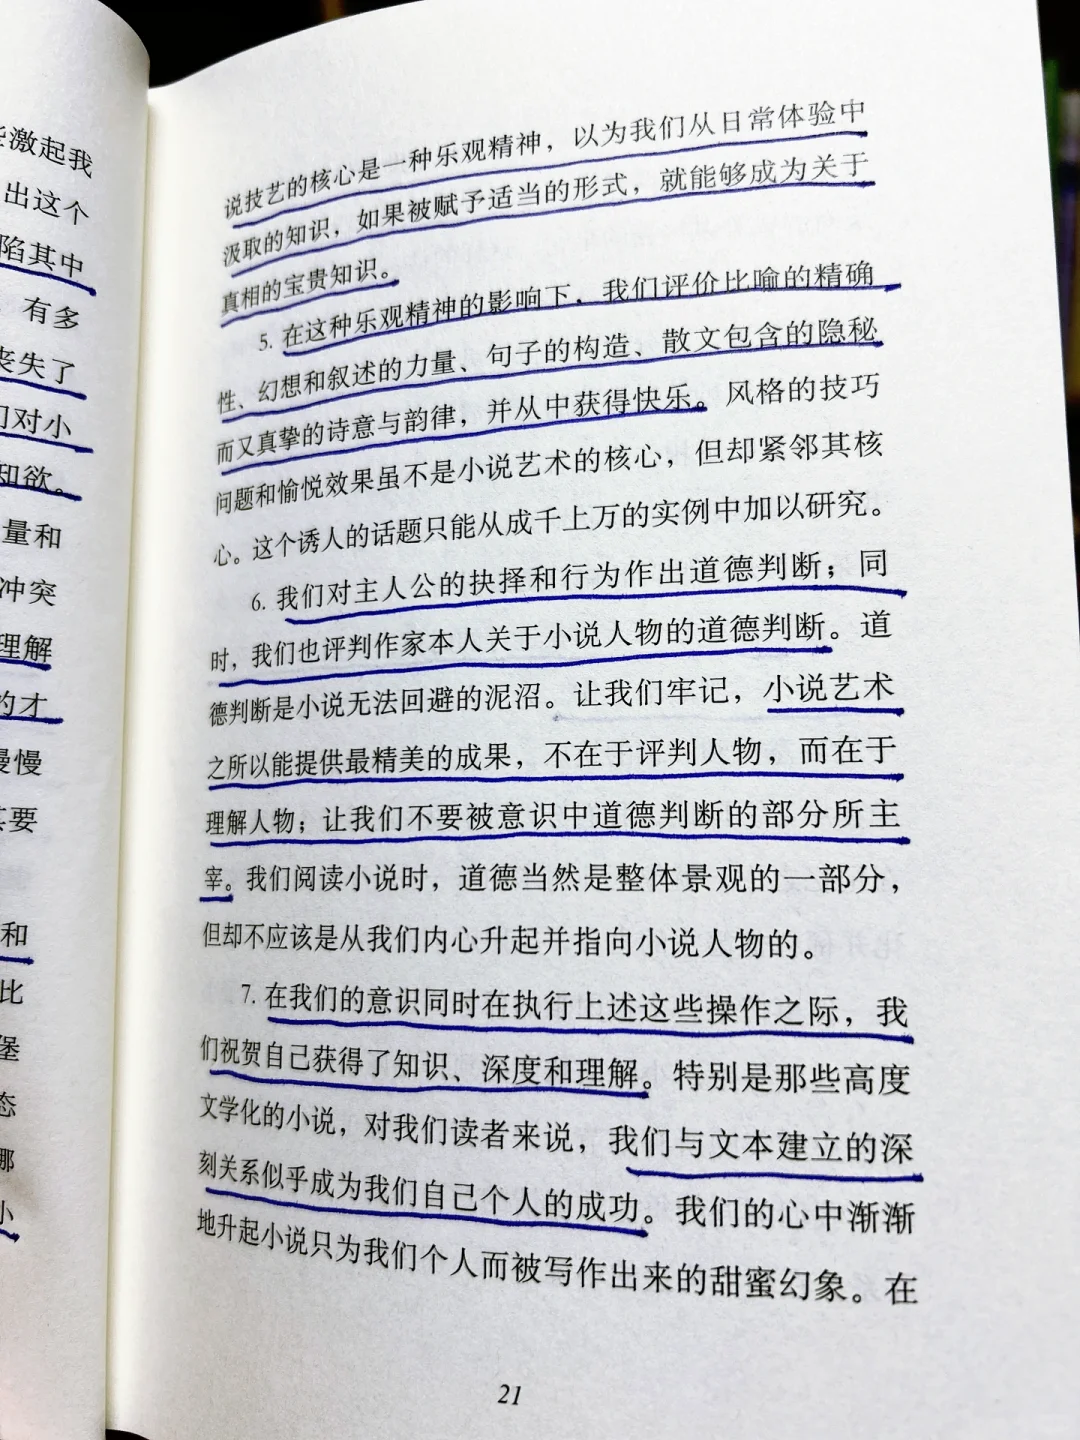 些激起我
出这个
陷其中
有多
丧失了
们对小
知欲。
量和
冲突
理解
的才
慢慢
其要
和
比
堡
态
那
小
说技艺的核心是一种乐观精神，以为我们从日常体验中
汲取的知识，如果被赋予适当的形式，就能够成为关于
真相的宝贵知识。
5. 在这种乐观精神的影响下，我们评价比喻的精确
性、幻想和叙述的力量、句子的构造、散文包含的隐秘
而又真挚的诗意与韵律，并从中获得快乐。风格的技巧
问题和愉悦效果虽不是小说艺术的核心，但却紧邻其核
心。这个诱人的话题只能从成千上万的实例中加以研究。
6. 我们对主人公的抉择和行为作出道德判断；同
时，我们也评判作家本人关于小说人物的道德判断。道
德判断是小说无法回避的泥沼。让我们牢记，小说艺术
之所以能提供最精美的成果，不在于评判人物，而在于
理解人物；让我们不要被意识中道德判断的部分所主
宰。我们阅读小说时，道德当然是整体景观的一部分，
但却不应该是从我们内心升起并指向小说人物的。
7. 在我们的意识同时在执行上述这些操作之际，我
们祝贺自己获得了知识、深度和理解。特别是那些高度
文学化的小说，对我们读者来说，我们与文本建立的深
刻关系似乎成为我们自己个人的成功。我们的心中渐渐
地升起小说只为我们个人而被写作出来的甜蜜幻象。在
21